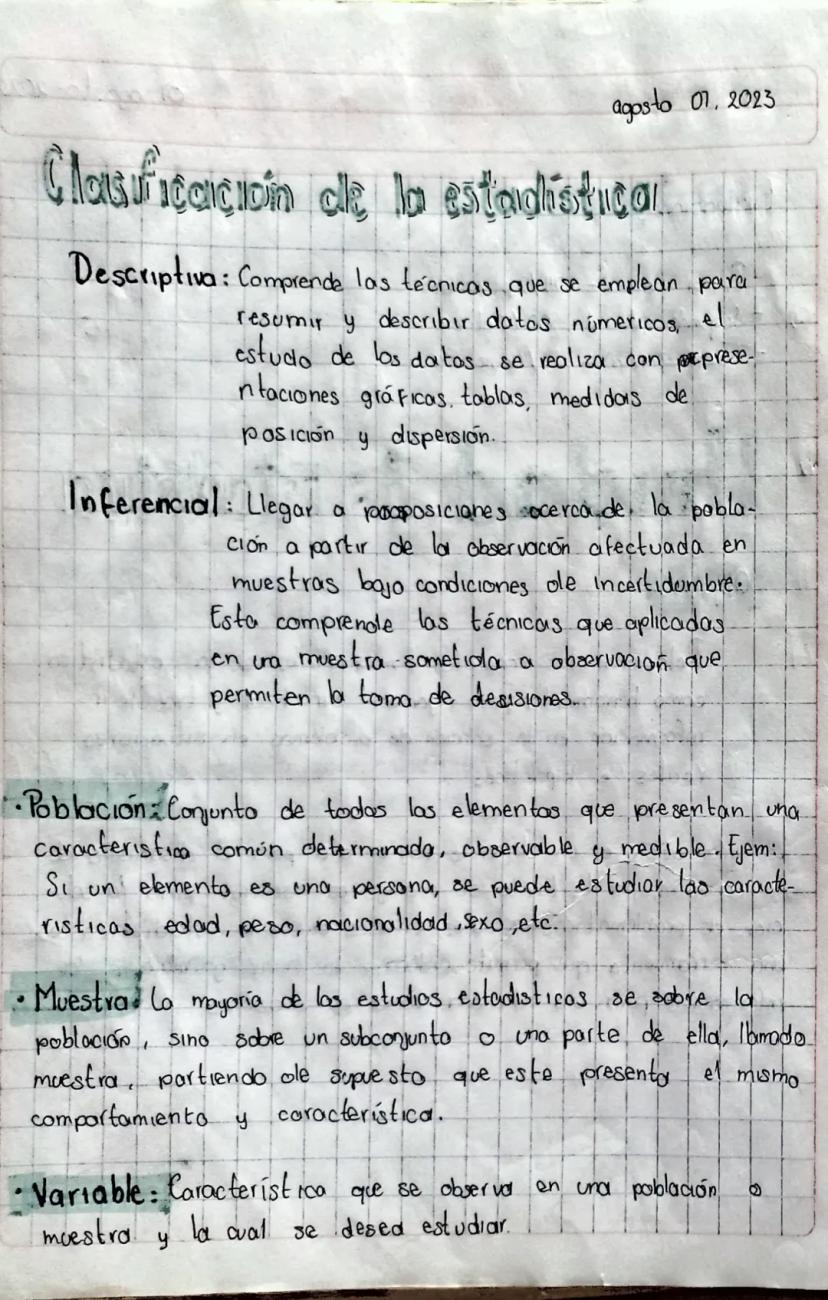 agosto 01. 2023
Clasificación de la estadística
Descriptiva: Comprende las técnicas que se emplean para
resumir y describir datos númericos, el
estudo de los datos se realiza con represe-
ntaciones gráficas, tablas, medidas de
posición y dispersión.
Inferencial: Llegar a proposiciones acerca de la pobla-
ción a partir de la observación afectuada en
muestras bajo condiciones de incertidumbre.
Esta comprende las técnicas que aplicadas
en una muestra sometida a observación que
permiten la toma de desisiones.
· Población: Conjunto de todos los elementos que presentan una
caracteristica común determinada, observable y medible. Ejem:
Si un elemento es una persona, se puede estudiar las caracte-
risticas edad, peso, nacionalidad, sexo, etc.
· Muestra: La mayoría de los estudios estadisticos se sobre la
población, sino sobre un subconjunto o una parte de ella, llamado
muestra, partiendo de supuesto que este presenta el mismo
comportamiento y característica.
· Variable: Característica que se observa en una población o
muestra y la cual se desea estudiar.